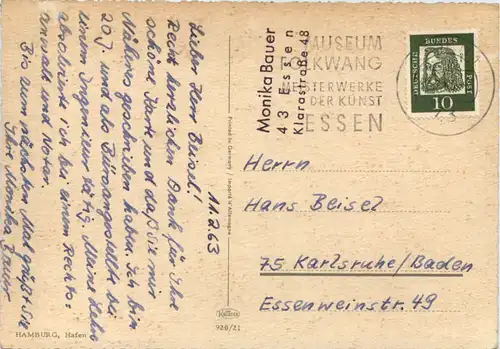 11.2.63
Lieber Herr Beisel!
Recht herzlichen Dank für Ihre
schöne Karte und daß sie mir
Näheres geschrieben haben. Ich bin
20 J. und als Büroangestellte bei
einem Ingenieur tätig. Meine Lehre
absolvierte ich bei einem Rechts-
anwalt und Notar.
Bis zum nächsten Mal grüßt Sie
Ihre Monika Bauer
HAMBURG, Hafen
Printed in Germany / Imprimé en Allemagne
Krüger
920/21
Monika Bauer
43 Essen
Klarastraße 48
MUSEUM
FOLKWANG
MEISTERWERKE
DER KUNST
ESSEN
DEUTSCHE BUNDESPOST
10
Herrn
Hans Beisel
75 Karlsruhe/Baden
Essenweinstr. 49